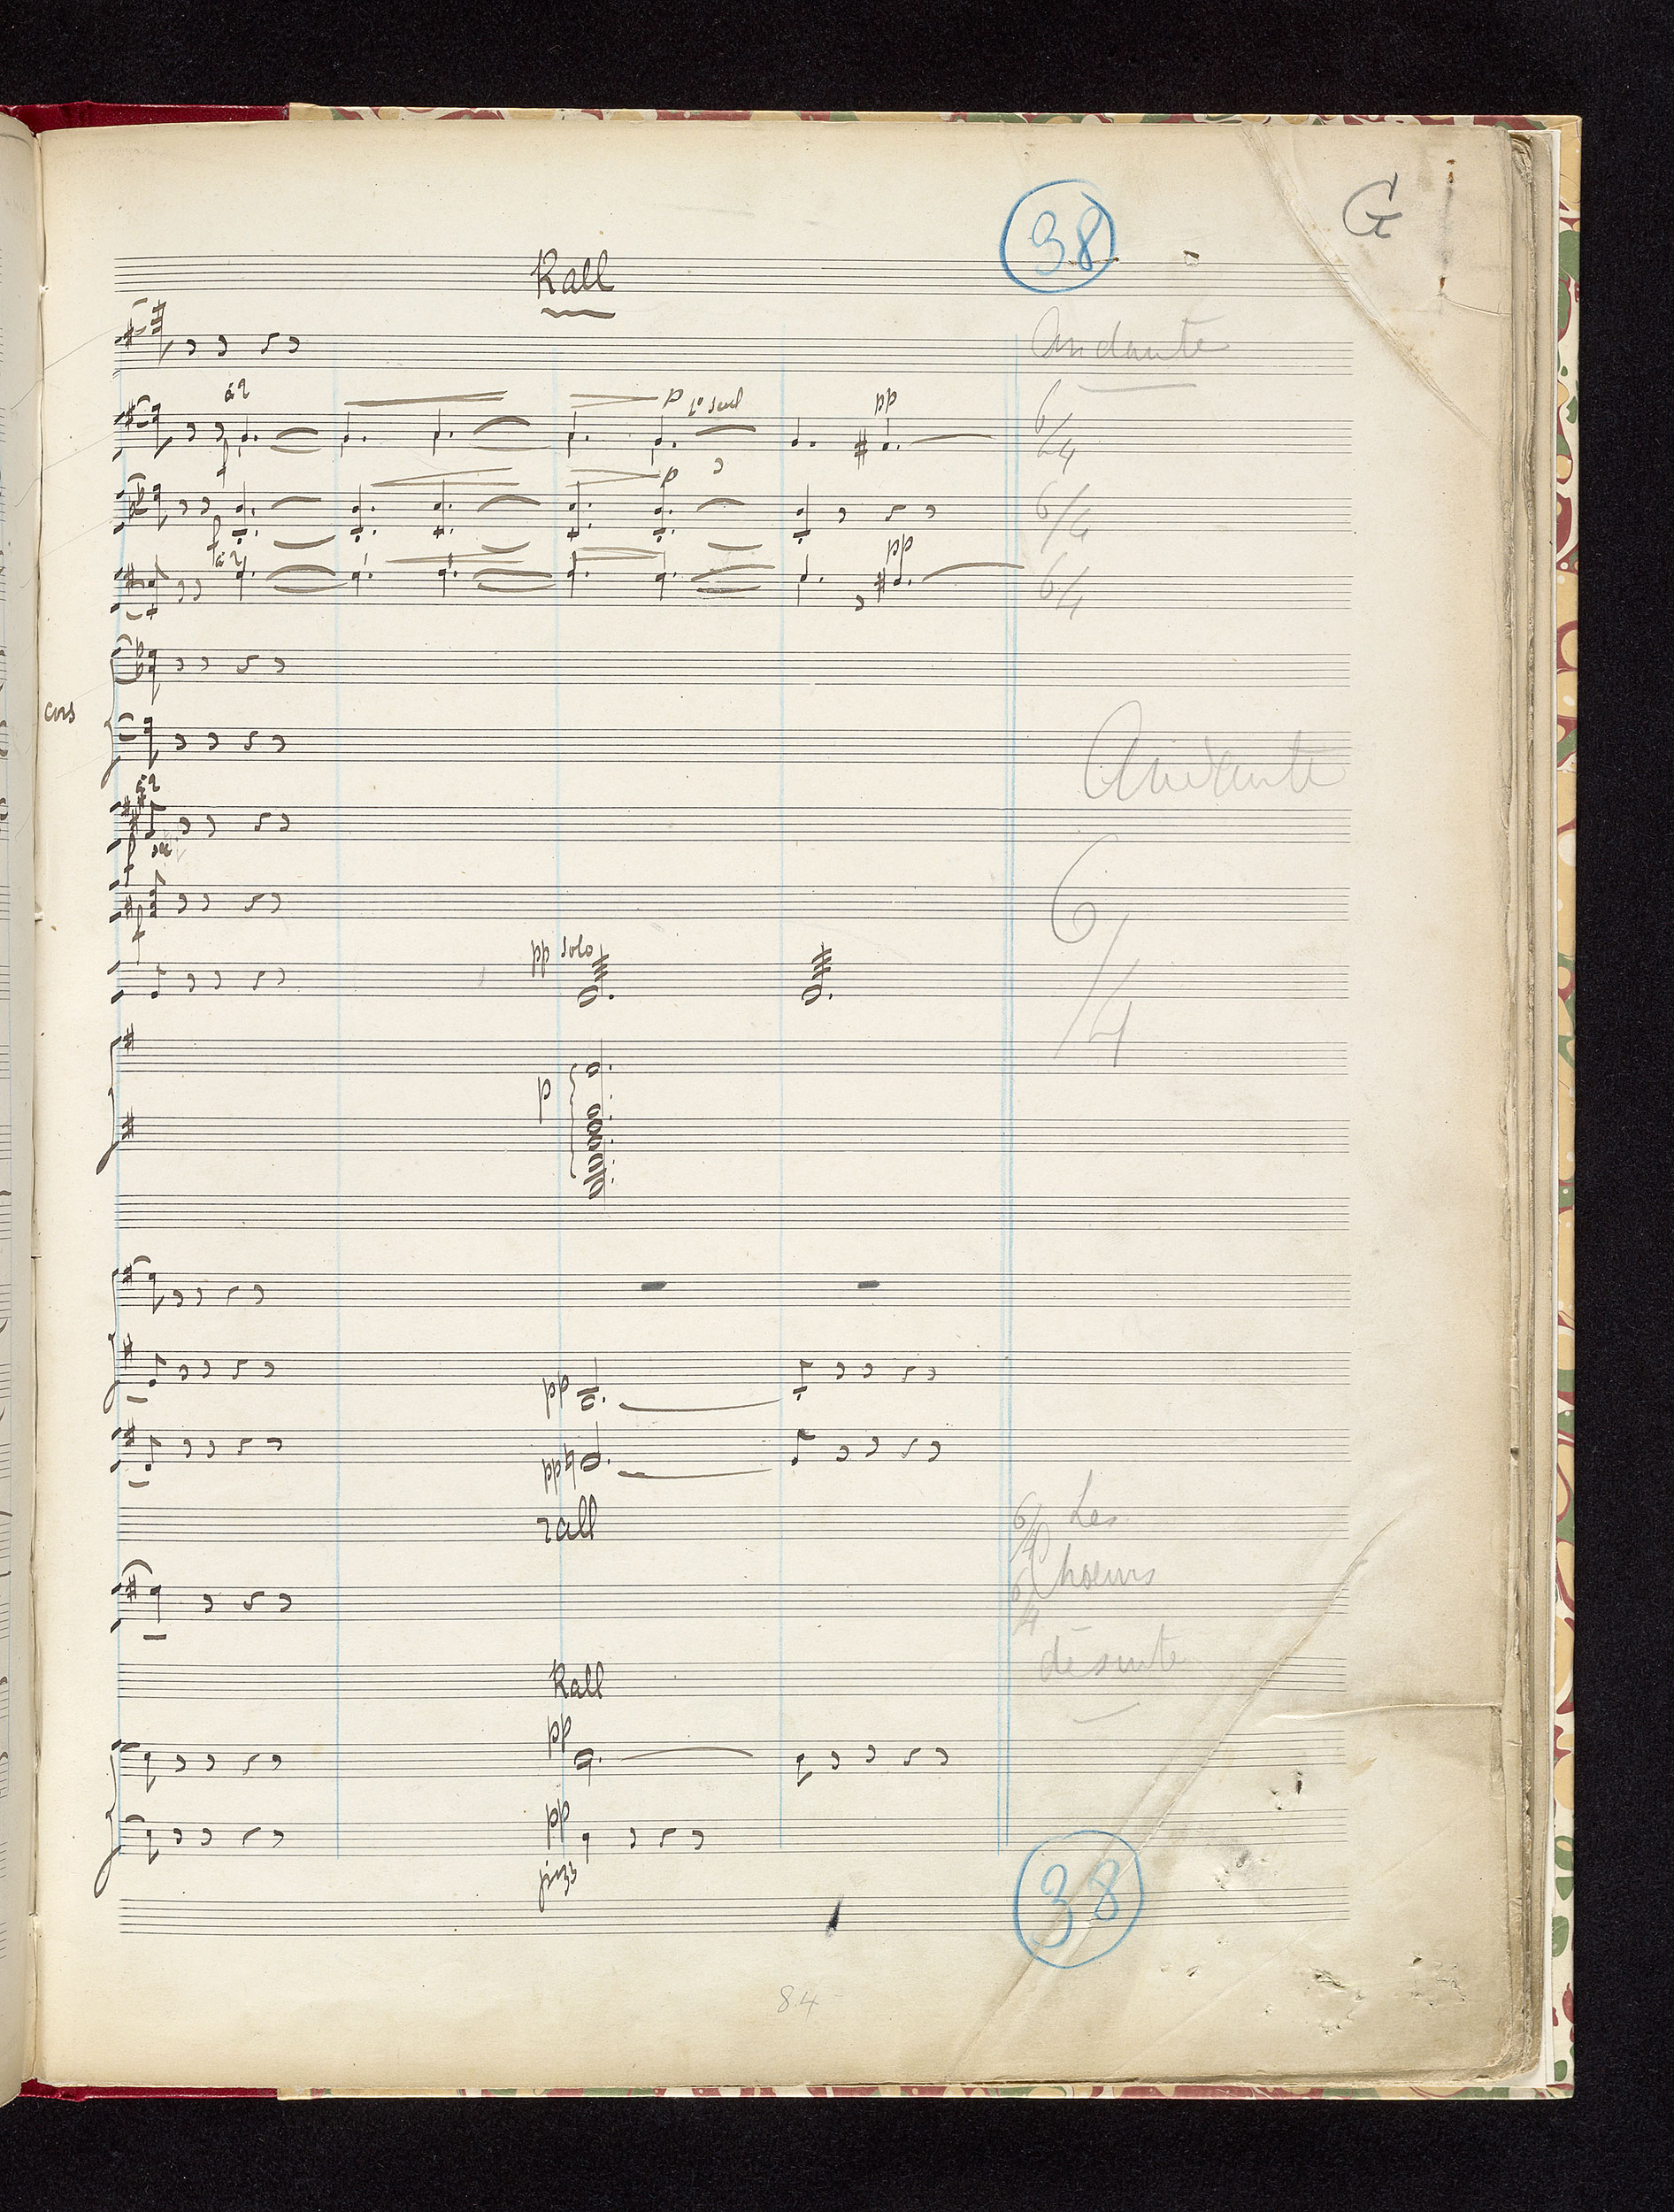 38
G
Rall
Andante
à 2
p 1° seul
pp
6/4
f
p
6/4
f
à 2
pp
6/4
cors
Andante
à 2
f
f
6/4
pp solo
p
pp
pp
rall
6/4 Les
6/4 Choeurs
de suite
Rall
pp
pp
pizz
38
84